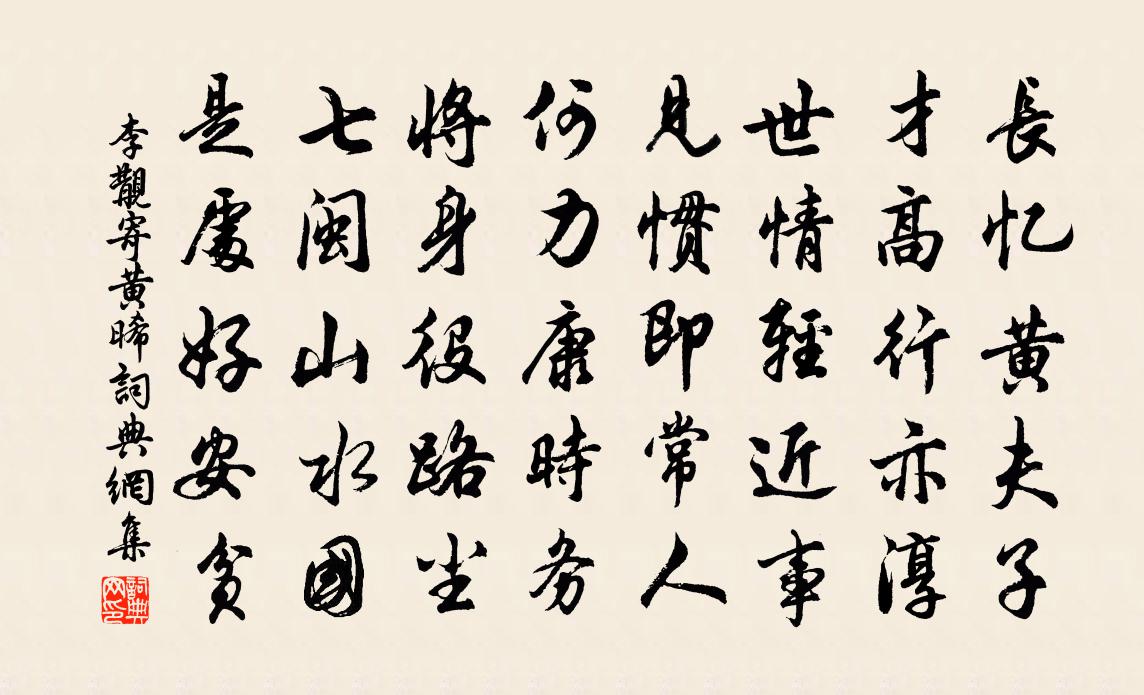 長忆黄夫子
才高行亦淳
世情輕近事
見慣即常人
何力康時务
将身役路尘
七闽山水國
是處好安貧
李覯寄黄晞詞典網集
詞典网印